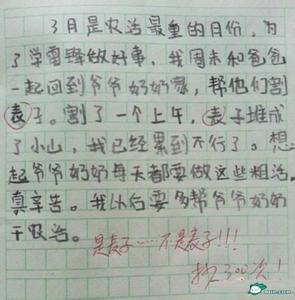 3月是农活最重的月份,为
了学雷锋做好事,我周末和爸爸
一起回到爷爷奶奶家,帮他们割
表子。割了一个上午,表子堆成
了小山,我已经累到不行了。想
起爷爷奶奶每天都要做这些粗活,
真辛苦。我以后要多帮爷爷奶奶
干农活。
是麦子……不是表子!!!
抄300次!